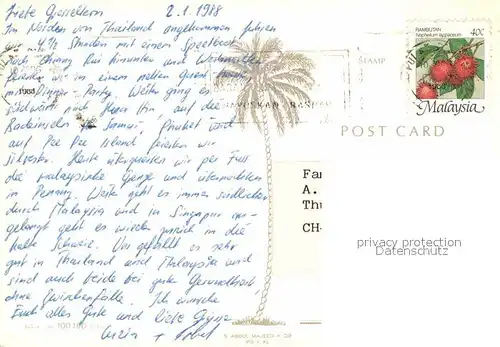 Liebe Gosseltern 2.1.1988
Im Norden von Thailand angekommen fuhren
wir 4½ Stunden mit einem Speetboot
nach Chiang Rai hinunter und Weihnachten
feierten wir in einem netten Guest House
mit Dinner-Party. Weiter ging es
südwärts nach Hua Hin, auf die
Badeinseln Ko Samui, Phuket und
auf Pee Pee Island feierten wir
Silvester. Heute überquerten wir per Fuss
die malaysische Grenze und übernachten
in Penang. Weiter geht es immer südlicher
durch Malaysia und in Singapur an-
gelangt geht es wieder zurück in die
kalte Schweiz. Uns gefällt es sehr
gut in Thailand und Malaysia und
sind auch beide bei guter Gesundheit,
ohne Zwischenfälle. Ich wünsche
Euch alles Gute und liebe Grüsse
1988
STAMP
RAMBUTAN
Nephelium lappaceum
40c
Malaysia
POST CARD
Fam
A.
Thu
CH-
privacy protection
Datenschutz